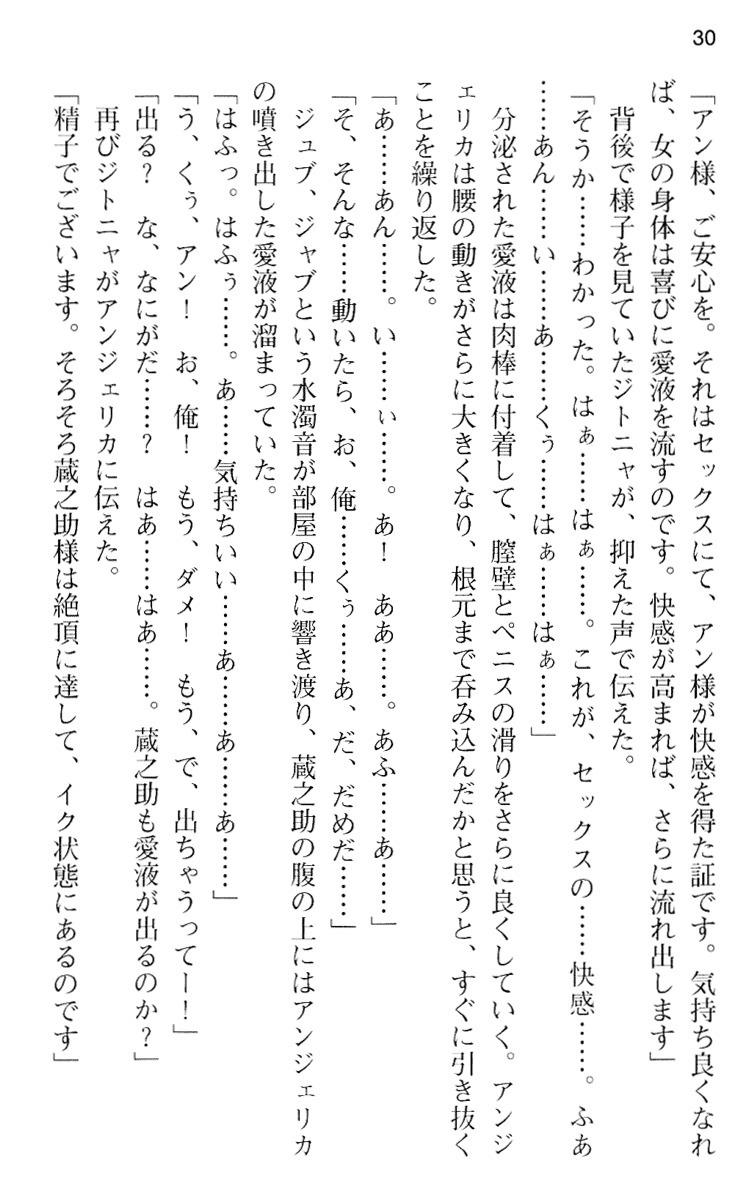 30
「アン様、ご安心を。それはセックスにて、アン様が快感を得た証です。気持ち良くなれ
ば、女の身体は喜びに愛液を流すのです。快感が高まれば、さらに流れ出します」
　背後で様子を見ていたジトニャが、抑えた声で伝えた。
「そうか……わかった。はぁ……はぁ……。これが、セックスの……快感……。ふあ
……あん……い……あ……くぅ……はぁ……はぁ……」
　分泌された愛液は肉棒に付着して、膣壁とペニスの滑りをさらに良くしていく。アンジ
ェリカは腰の動きがさらに大きくなり、根元まで呑み込んだかと思うと、すぐに引き抜く
ことを繰り返した。
「あ……あん……。い……ぃ……。あ！　ああ……。あふ……あ……」
「そ、そんな……動いたら、お、俺……くぅ……あ、だ、だめだ……」
　ジュブ、ジャブという水濁音が部屋の中に響き渡り、蔵之助の腹の上にはアンジェリカ
の噴き出した愛液が溜まっていた。
「はふっ。はふぅ……。あ……気持ちいい……あ……あ……あ……」
「う、くぅ、アン！　お、俺！　もう、ダメ！　もう、で、出ちゃうってー！」
「出る？　な、なにがだ……？　はあ……はあ……。蔵之助も愛液が出るのか？」
　再びジトニャがアンジェリカに伝えた。
「精子でございます。そろそろ蔵之助様は絶頂に達して、イク状態にあるのです」